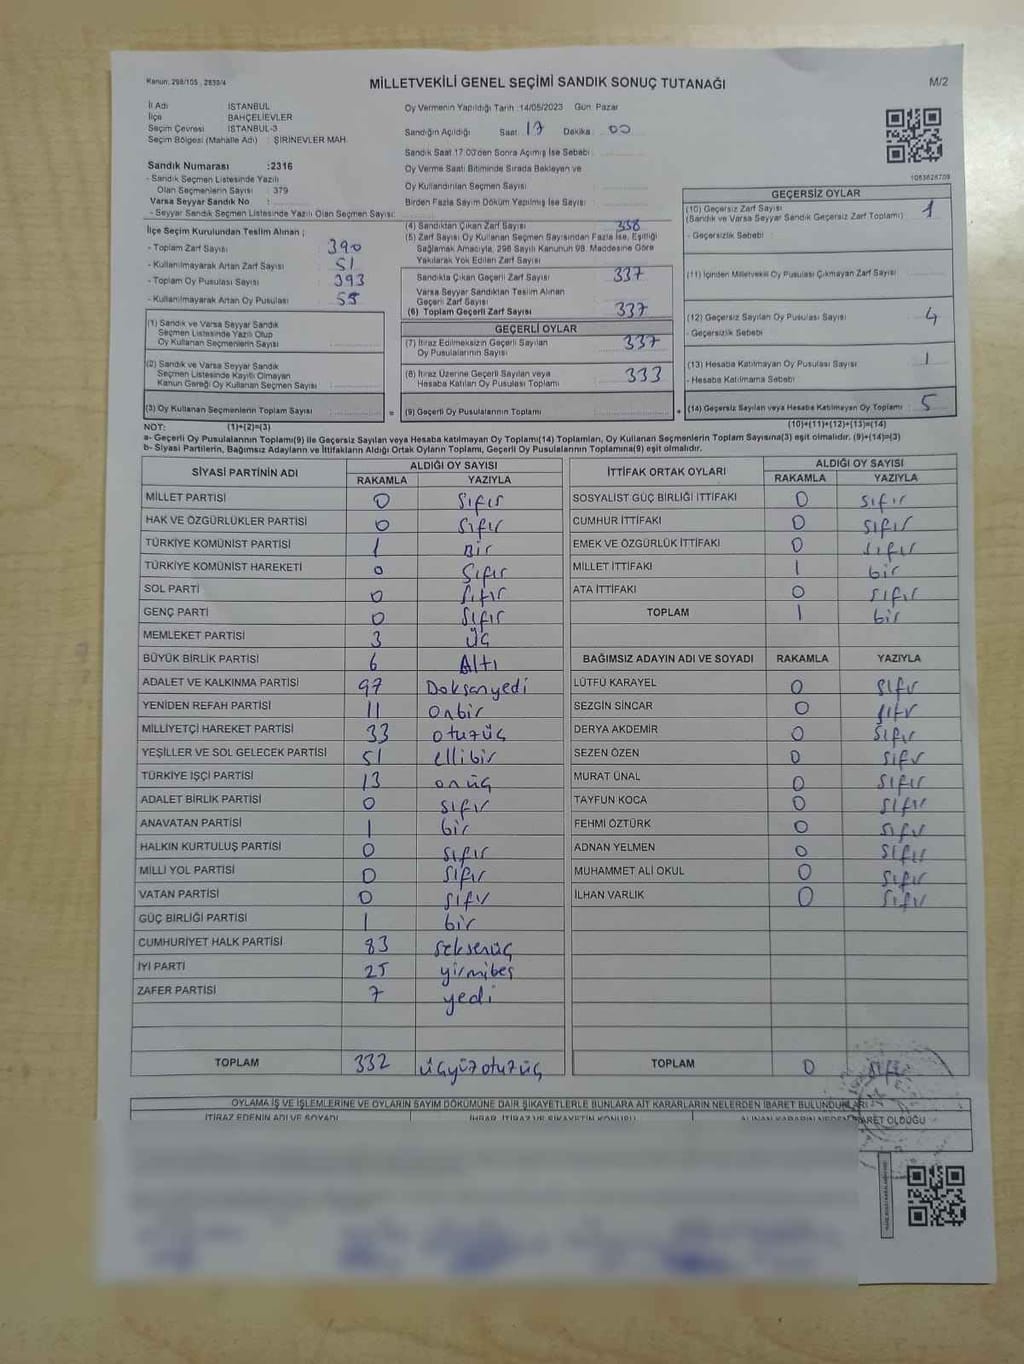 Kanun: 298/105 , 2839/4
MİLLETVEKİLİ GENEL SEÇİMİ SANDIK SONUÇ TUTANAĞI
M/2
İl Adı İSTANBUL
İlçe BAHÇELİEVLER
Seçim Çevresi İSTANBUL-3
Seçim Bölgesi (Mahalle Adı) : ŞİRİNEVLER MAH.
Sandık Numarası :2316
- Sandık Seçmen Listesinde Yazılı
Olan Seçmenlerin Sayısı : 379
Varsa Seyyar Sandık No
- Seyyar Sandık Seçmen Listesinde Yazılı Olan Seçmen Sayısı:
Oy Vermenin Yapıldığı Tarih :14/05/2023 Gün: Pazar
Sandığın Açıldığı Saat 17 Dakika : 00
Sandık Saat 17.00'den Sonra Açılmış İse Sebebi :
Oy Verme Saati Bitiminde Sırada Bekleyen ve
Oy Kullandırılan Seçmen Sayısı :
Birden Fazla Sayım Döküm Yapılmış İse Sayısı :
1083628709
İlçe Seçim Kurulundan Teslim Alınan ;
- Toplam Zarf Sayısı : 390
- Kullanılmayarak Artan Zarf Sayısı : 51
- Toplam Oy Pusulası Sayısı : 393
- Kullanılmayarak Artan Oy Pusulası : 55
(1) Sandık ve Varsa Seyyar Sandık
Seçmen Listesinde Yazılı Olup
Oy Kullanan Seçmenlerin Sayısı :
(2) Sandık ve Varsa Seyyar Sandık
Seçmen Listesinde Kayıtlı Olmayan
Kanun Gereği Oy Kullanan Seçmen Sayısı :
(3) Oy Kullanan Seçmenlerin Toplam Sayısı :
(4) Sandıktan Çıkan Zarf Sayısı : 338
(5) Zarf Sayısı Oy Kullanan Seçmen Sayısından Fazla İse, Eşitliği
Sağlamak Amacıyla, 298 Sayılı Kanunun 98. Maddesine Göre
Yakılarak Yok Edilen Zarf Sayısı :
Sandıkta Çıkan Geçerli Zarf Sayısı : 337
Varsa Seyyar Sandıktan Teslim Alınan
Geçerli Zarf Sayısı :
(6) Toplam Geçerli Zarf Sayısı : 337
GEÇERLİ OYLAR
(7) İtiraz Edilmeksizin Geçerli Sayılan
Oy Pusulalarının Sayısı : 337
(8) İtiraz Üzerine Geçerli Sayılan veya
Hesaba Katılan Oy Pusulası Toplamı : 333
= (9) Geçerli Oy Pusulalarının Toplamı :
GEÇERSİZ OYLAR
(10) Geçersiz Zarf Sayısı
(Sandık ve Varsa Seyyar Sandık Geçersiz Zarf Toplamı) : 1
- Geçersizlik Sebebi :
(11) İçinden Milletvekili Oy Pusulası Çıkmayan Zarf Sayısı :
(12) Geçersiz Sayılan Oy Pusulası Sayısı : 4
- Geçersizlik Sebebi
(13) Hesaba Katılmayan Oy Pusulası Sayısı : 1
- Hesaba Katılmama Sebebi
+ (14) Geçersiz Sayılan veya Hesaba Katılmayan Oy Toplamı : 5
NOT: (1)+(2)=(3)
(10)+(11)+(12)+(13)=(14)
a- Geçerli Oy Pusulalarının Toplamı(9) ile Geçersiz Sayılan veya Hesaba katılmayan Oy Toplamı(14) Toplamları, Oy Kullanan Seçmenlerin Toplam Sayısına(3) eşit olmalıdır. (9)+(14)=(3)
b- Siyasi Partilerin, Bağımsız Adayların ve İttifakların Aldığı Ortak Oyların Toplamı, Geçerli Oy Pusulalarının Toplamına(9) eşit olmalıdır.
SİYASİ PARTİNİN ADI ALDIĞI OY SAYISI
RAKAMLA YAZIYLA
MİLLET PARTİSİ 0 Sıfır
HAK VE ÖZGÜRLÜKLER PARTİSİ 0 Sıfır
TÜRKİYE KOMÜNİST PARTİSİ 1 Bir
TÜRKİYE KOMÜNİST HAREKETİ 0 Sıfır
SOL PARTİ 0 Sıfır
GENÇ PARTİ 0 Sıfır
MEMLEKET PARTİSİ 3 üç
BÜYÜK BİRLİK PARTİSİ 6 Altı
ADALET VE KALKINMA PARTİSİ 97 Doksanyedi
YENİDEN REFAH PARTİSİ 11 onbir
MİLLİYETÇİ HAREKET PARTİSİ 33 otuzüç
YEŞİLLER VE SOL GELECEK PARTİSİ 51 ellibir
TÜRKİYE İŞÇİ PARTİSİ 13 onüç
ADALET BİRLİK PARTİSİ 0 sıfır
ANAVATAN PARTİSİ 1 bir
HALKIN KURTULUŞ PARTİSİ 0 sıfır
MİLLİ YOL PARTİSİ 0 sıfır
VATAN PARTİSİ 0 sıfır
GÜÇ BİRLİĞİ PARTİSİ 1 bir
CUMHURİYET HALK PARTİSİ 83 seksenüç
İYİ PARTİ 25 yirmibeş
ZAFER PARTİSİ 7 yedi
TOPLAM 332 üçyüzotuzüç
İTTİFAK ORTAK OYLARI ALDIĞI OY SAYISI
RAKAMLA YAZIYLA
SOSYALİST GÜÇ BİRLİĞİ İTTİFAKI 0 sıfır
CUMHUR İTTİFAKI 0 sıfır
EMEK VE ÖZGÜRLÜK İTTİFAKI 0 sıfır
MİLLET İTTİFAKI 1 bir
ATA İTTİFAKI 0 sıfır
TOPLAM 1 bir
BAĞIMSIZ ADAYIN ADI VE SOYADI RAKAMLA YAZIYLA
LÜTFÜ KARAYEL 0 sıfır
SEZGİN SİNCAR 0 sıfır
DERYA AKDEMİR 0 sıfır
SEZEN ÖZEN 0 sıfır
MURAT ÜNAL 0 sıfır
TAYFUN KOCA 0 sıfır
FEHMİ ÖZTÜRK 0 sıfır
ADNAN YELMEN 0 sıfır
MUHAMMET ALİ OKUL 0 sıfır
İLHAN VARLIK 0 sıfır
TOPLAM 0 sıfır
OYLAMA İŞ VE İŞLEMLERİNE VE OYLARIN SAYIM DÖKÜMÜNE DAİR ŞİKAYETLERLE BUNLARA AİT KARARLARIN NELERDEN İBARET BULUNDUKLARI
İTİRAZ EDENİN ADI VE SOYADI İHBAR, İTİRAZ VE ŞİKAYETİN KONUSU ALINAN KARARIN NEDEN İBARET OLDUĞU